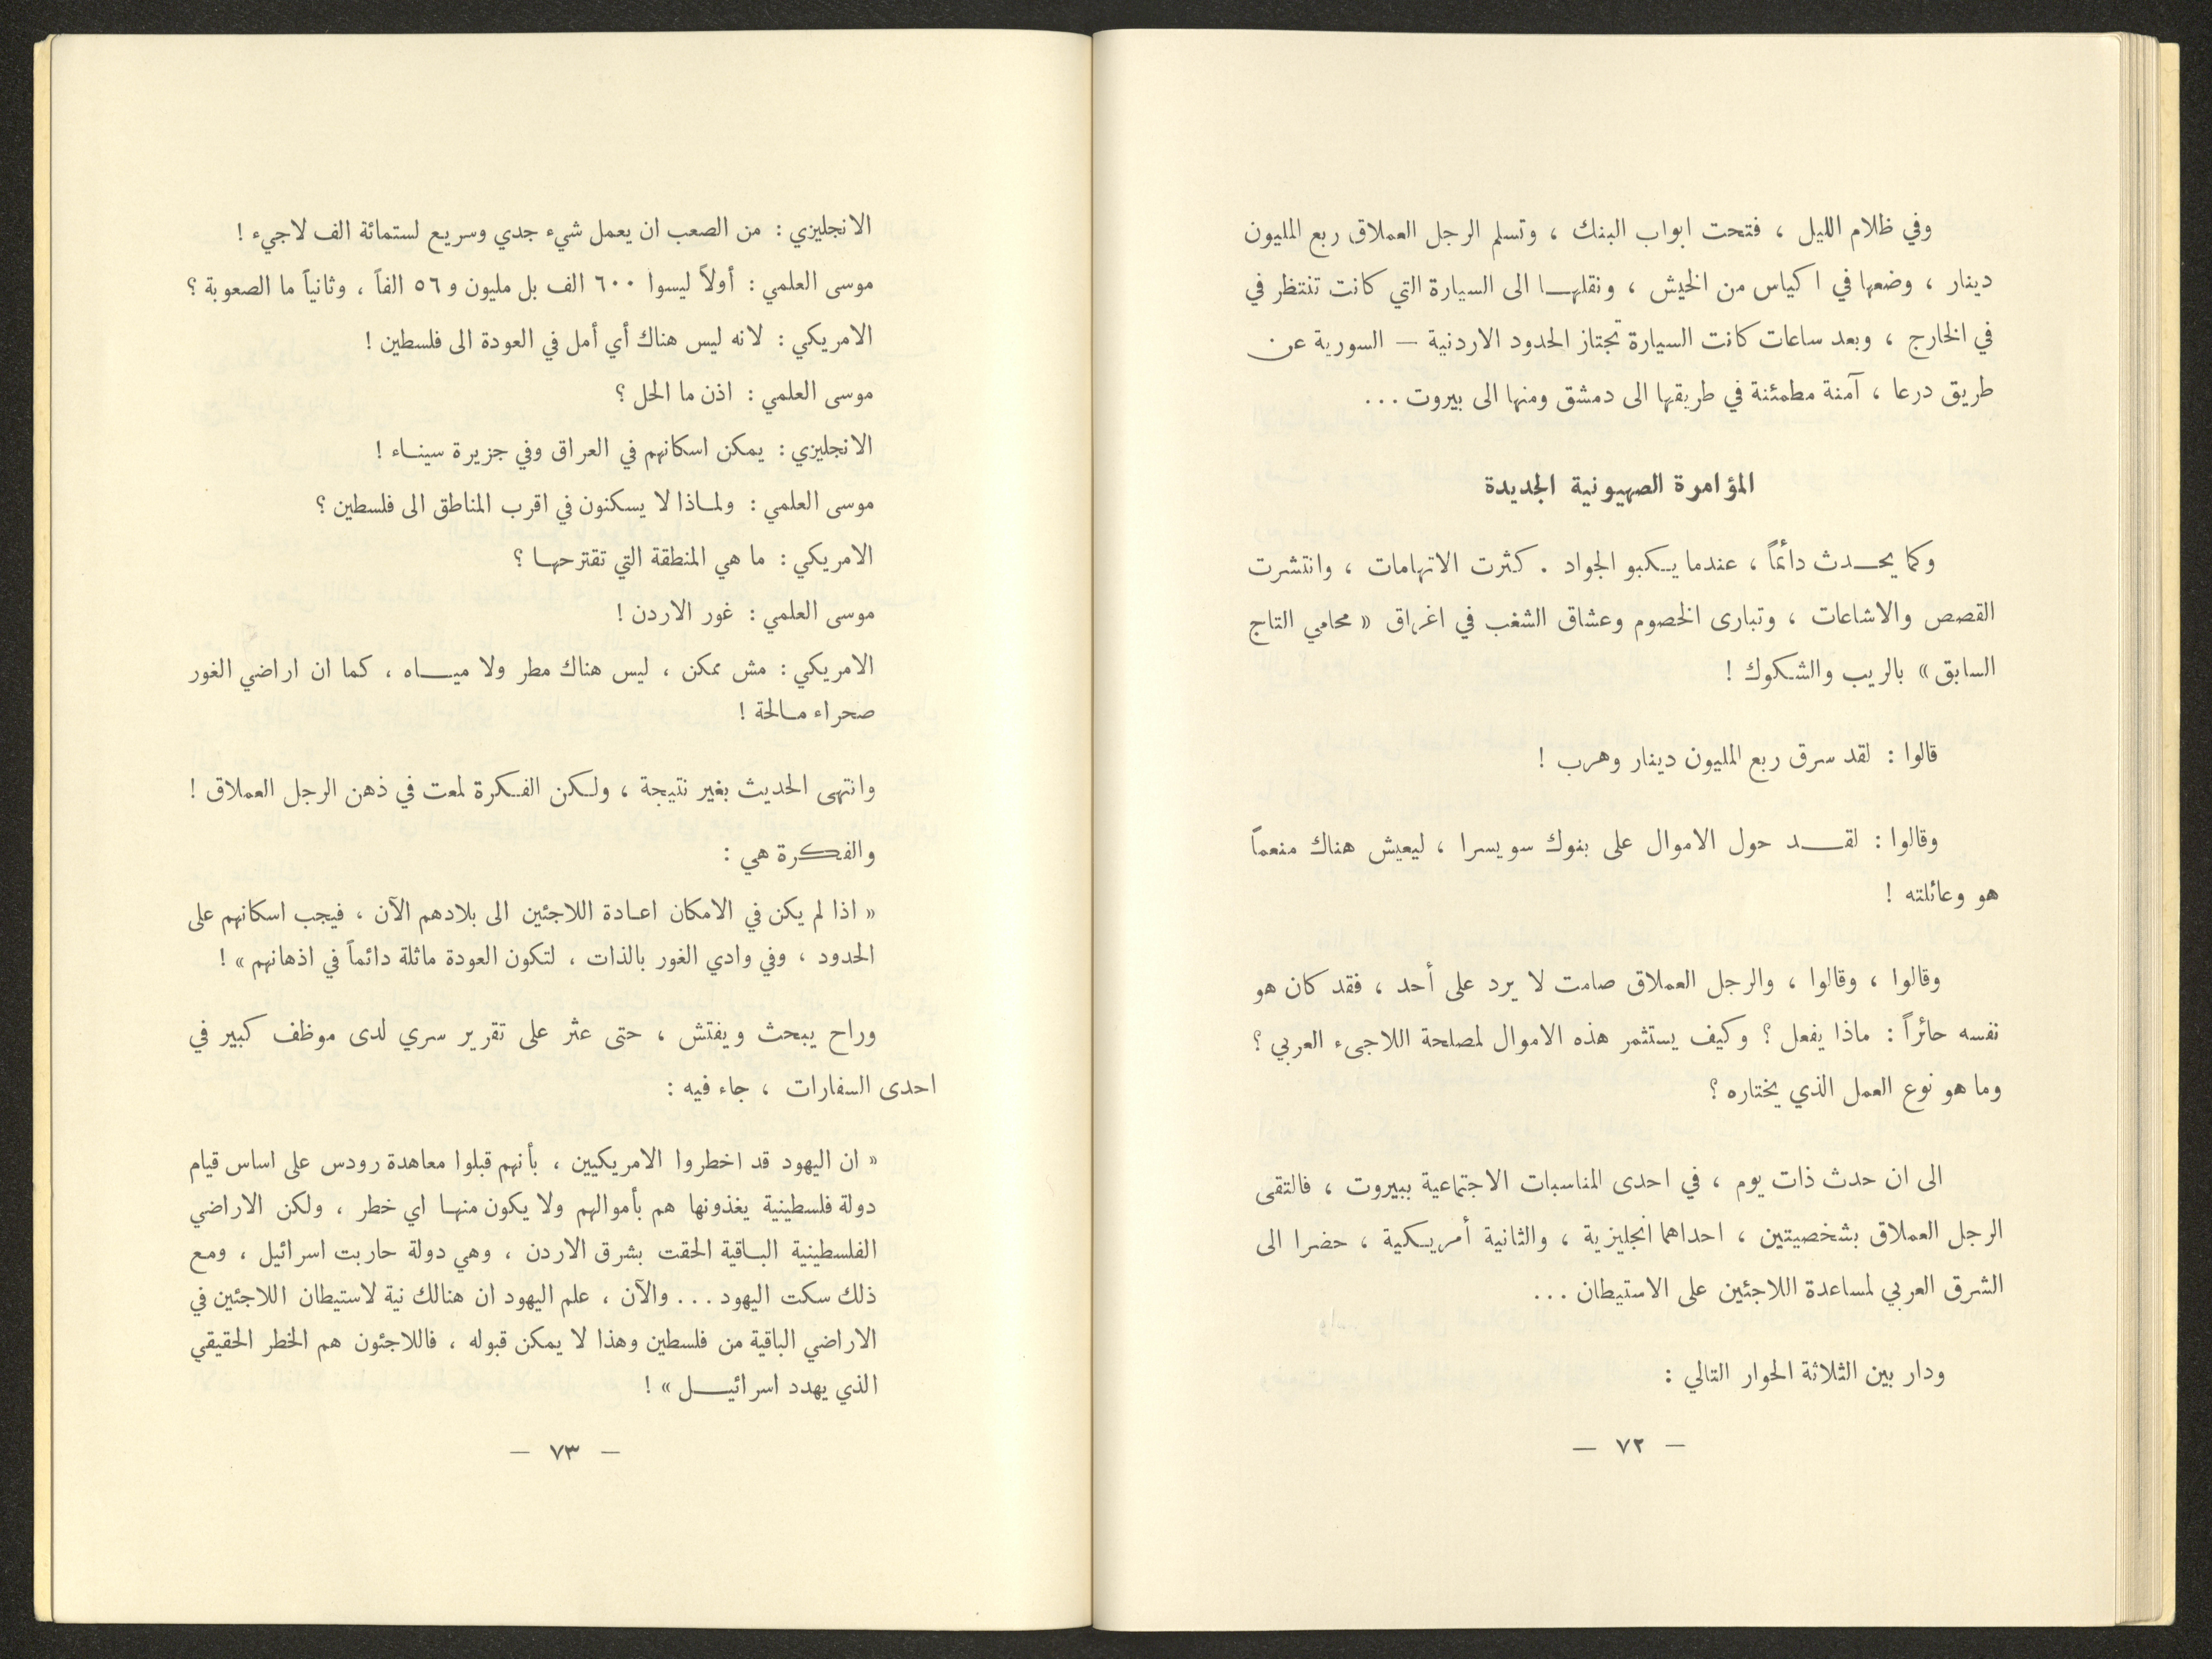 وفي ظلام الليل ، فتحت ابواب البنك ، وتسلم الرجل العملاق ربع المليون
دينار ، وضعها في اكياس من الخيش ، ونقلهـا الى السيارة التي كانت تنتظر في
في الخارج ، وبعد ساعات كانت السيارة تجتاز الحدود الاردنية — السورية عن
طريق درعا ، آمنة مطمئنة في طريقها الى دمشق ومنها الى بيروت ...
المؤامرة الصهيونية الجديدة
وكما يحـدث دائماً ، عندما يكبو الجواد . كثرت الاتهامات ، وانتشرت
القصص والاشاعات ، وتبارى الخصوم وعشاق الشغب في اغراق « محامي التاج
السابق » بالريب والشكوك !
قالوا : لقد سرق ربع المليون دينار وهرب !
وقالوا : لقـد حول الاموال على بنوك سويسرا ، ليعيش هناك منعماً
هو وعائلته !
وقالوا ، وقالوا ، والرجل العملاق صامت لا يرد على أحد ، فقد كان هو
نفسه حائراً : ماذا يفعل ؟ وكيف يستثمر هذه الاموال لمصلحة اللاجىء العربي ؟
وما هو نوع العمل الذي يختاره ؟
الى ان حدث ذات يوم ، في احدى المناسبات الاجتماعية ببيروت ، فالتقى
الرجل العملاق بشخصيتين ، احداهما انجليزية ، والثانية أمريكية ، حضرا الى
الشرق العربي لمساعدة اللاجئين على الاستيطان ...
ودار بين الثلاثة الحوار التالي :
— ٧٢ —
الانجليزي : من الصعب ان يعمل شيء جدي وسريع لستمائة الف لاجيء !
موسى العلمي : أولاً ليسوا ٦٠٠ الف بل مليون و ٥٦ الفاً ، وثانياً ما الصعوبة ؟
الامريكي : لانه ليس هناك أي أمل في العودة الى فلسطين !
موسى العلمي : اذن ما الحل ؟
الانجليزي : يمكن اسكانهم في العراق وفي جزيرة سينـاء !
موسى العلمي : ولمـاذا لا يسكنون في اقرب المناطق الى فلسطين ؟
الامريكي : ما هي المنطقة التي تقترحهـا ؟
موسى العلمي : غور الاردن !
الامريكي : مش ممكن ، ليس هناك مطر ولا ميـاه ، كما ان اراضي الغور
صحراء مـالحة !
وانتهى الحديث بغير نتيجة ، ولكن الفكرة لمعت في ذهن الرجل العملاق !
والفكرة هي :
« اذا لم يكن في الامكان اعـادة اللاجئين الى بلادهم الآن ، فيجب اسكانهم على
الحدود ، وفي وادي الغور بالذات ، لتكون العودة ماثلة دائماً في اذهانهم » !
وراح يبحث ويفتش ، حتى عثر على تقرير سري لدى موظف كبير في
احدى السفارات ، جاء فيه :
« ان اليهود قد اخطروا الامريكيين ، بأنهم قبلوا معاهدة رودس على اساس قيام
دولة فلسطينية يغذونها هم بأموالهم ولا يكون منهـا اي خطر ، ولكن الاراضي
الفلسطينية البـاقية الحقت بشرق الاردن ، وهي دولة حاربت اسرائيل ، ومع
ذلك سكت اليهود ... والآن ، علم اليهود ان هنالك نية لاستيطان اللاجئين في
الاراضي الباقية من فلسطين وهذا لا يمكن قبوله ، فاللاجئون هم الخطر الحقيقي
الذي يهدد اسرائيـل » !
— ٧٣ —